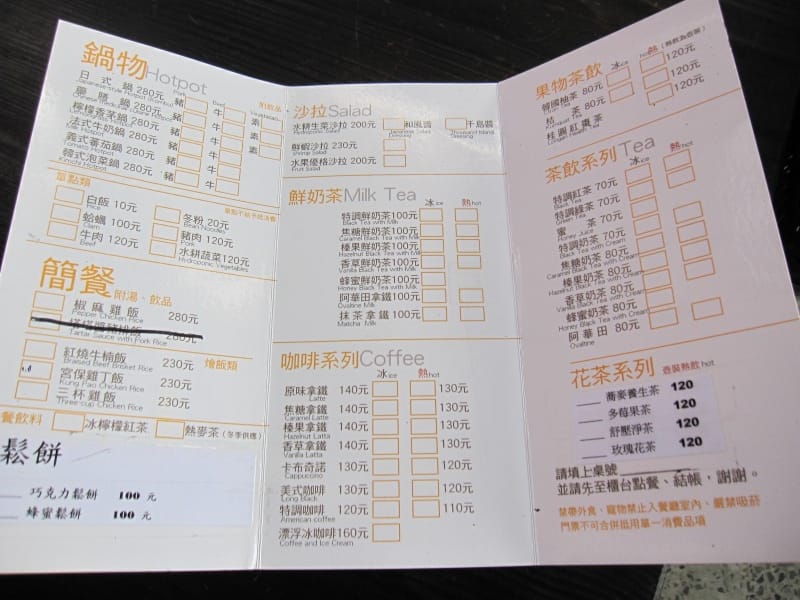 鍋物Hotpot
Pork Beef Vegetarian 附飲品
日式鍋 280元 豬 牛
藥膳鍋 280元 豬 牛 素
檸檬香茅鍋 280元 豬 牛 素
法式牛奶鍋 280元 豬 牛 素
Milk Hotpot
義式番茄鍋 280元 豬 牛
Tomato Hotpot
韓式泡菜鍋 280元 豬 牛
Kimchi Hotpot
單點類
單點不給予抵消費
白飯 10元 冬粉 20元
Rice Bean Noodles
蛤蠣 100元 豬肉 120元
Clam Pork
牛肉 120元 水耕蔬菜120元
Beef Hydroponic Vegetables
簡餐 附湯、飲品
椒麻雞飯 280元
Pepper Chicken Rice
塔塔醬豬排飯 280元
Tartar Sauce with Pork Rice
紅燒牛楠飯 230元 燴飯類
Braised Beef Brisket Rice
宮保雞丁飯 230元
Kung Pao Chicken Rice
三杯雞飯 230元
Three-cup Chicken Rice
餐飲料 冰檸檬紅茶 熱麥茶(冬季供應)
鬆餅
巧克力鬆餅 100 元
蜂蜜鬆餅 100 元
沙拉Salad
水耕生菜沙拉 200元 和風醬 千島醬
Hydroponic Salad Japanese Salad Dressing Thousand Island Dressing
鮮蝦沙拉 230元
Shrimp Salad
水果優格沙拉 200元
Fruit Salad
鮮奶茶Milk Tea 冰ice 熱hot
特調鮮奶茶100元
Black Tea with Milk
焦糖鮮奶茶100元
Caramel Black Tea with Milk
榛果鮮奶茶100元
Hazelnut Black Tea with Milk
香草鮮奶茶100元
Vanilla Black Tea with Milk
蜂蜜鮮奶茶100元
Honey Black Tea with Milk
阿華田拿鐵100元
Ovaltine Milk
抹茶拿鐵100元
Matcha Milk
咖啡系列Coffee
冰ice 熱hot
原味拿鐵 140元 130元
Latte
焦糖拿鐵 140元 130元
Caramel Latte
榛果拿鐵 140元 130元
Hazelnut Latte
香草拿鐵 140元 130元
Vanilla Latte
卡布奇諾 130元 120元
Cappucono
美式咖啡 130元 120元
Long Black
特調咖啡 120元 110元
American coffee
漂浮冰咖啡160元
Coffee and Ice Cream
果物茶飲 冰ice 熱hot (熱飲為壺裝)
韓國柚茶 80元 120元
桔茶 80元 120元
Kumquat Tea
桂圓紅棗茶 120元
Longan Health Tea
茶飲系列Tea
冰ice 熱hot
特調紅茶 70元
Black Tea
特調綠茶 70元
Green Tea
蜜茶 70元
Honey Juice
特調奶茶 70元
Black Tea with Cream
焦糖奶茶 80元
Caramel Black Tea with Cream
榛果奶茶 80元
Hazelnut Black Tea with Cream
香草奶茶 80元
Vanilla Black Tea with Cream
蜂蜜奶茶 80元
Honey Black Tea with Cream
阿華田 80元
Ovaltine
花茶系列 壺裝熱飲 hot
蕎麥養生茶 120
多莓果茶 120
舒壓淨茶 120
玫瑰花茶 120
請填上桌號
並請先至櫃台點餐、結帳，謝謝。
禁帶外食、寵物禁止入餐廳室內、嚴禁吸菸
門票不可合併抵用單一消費品項